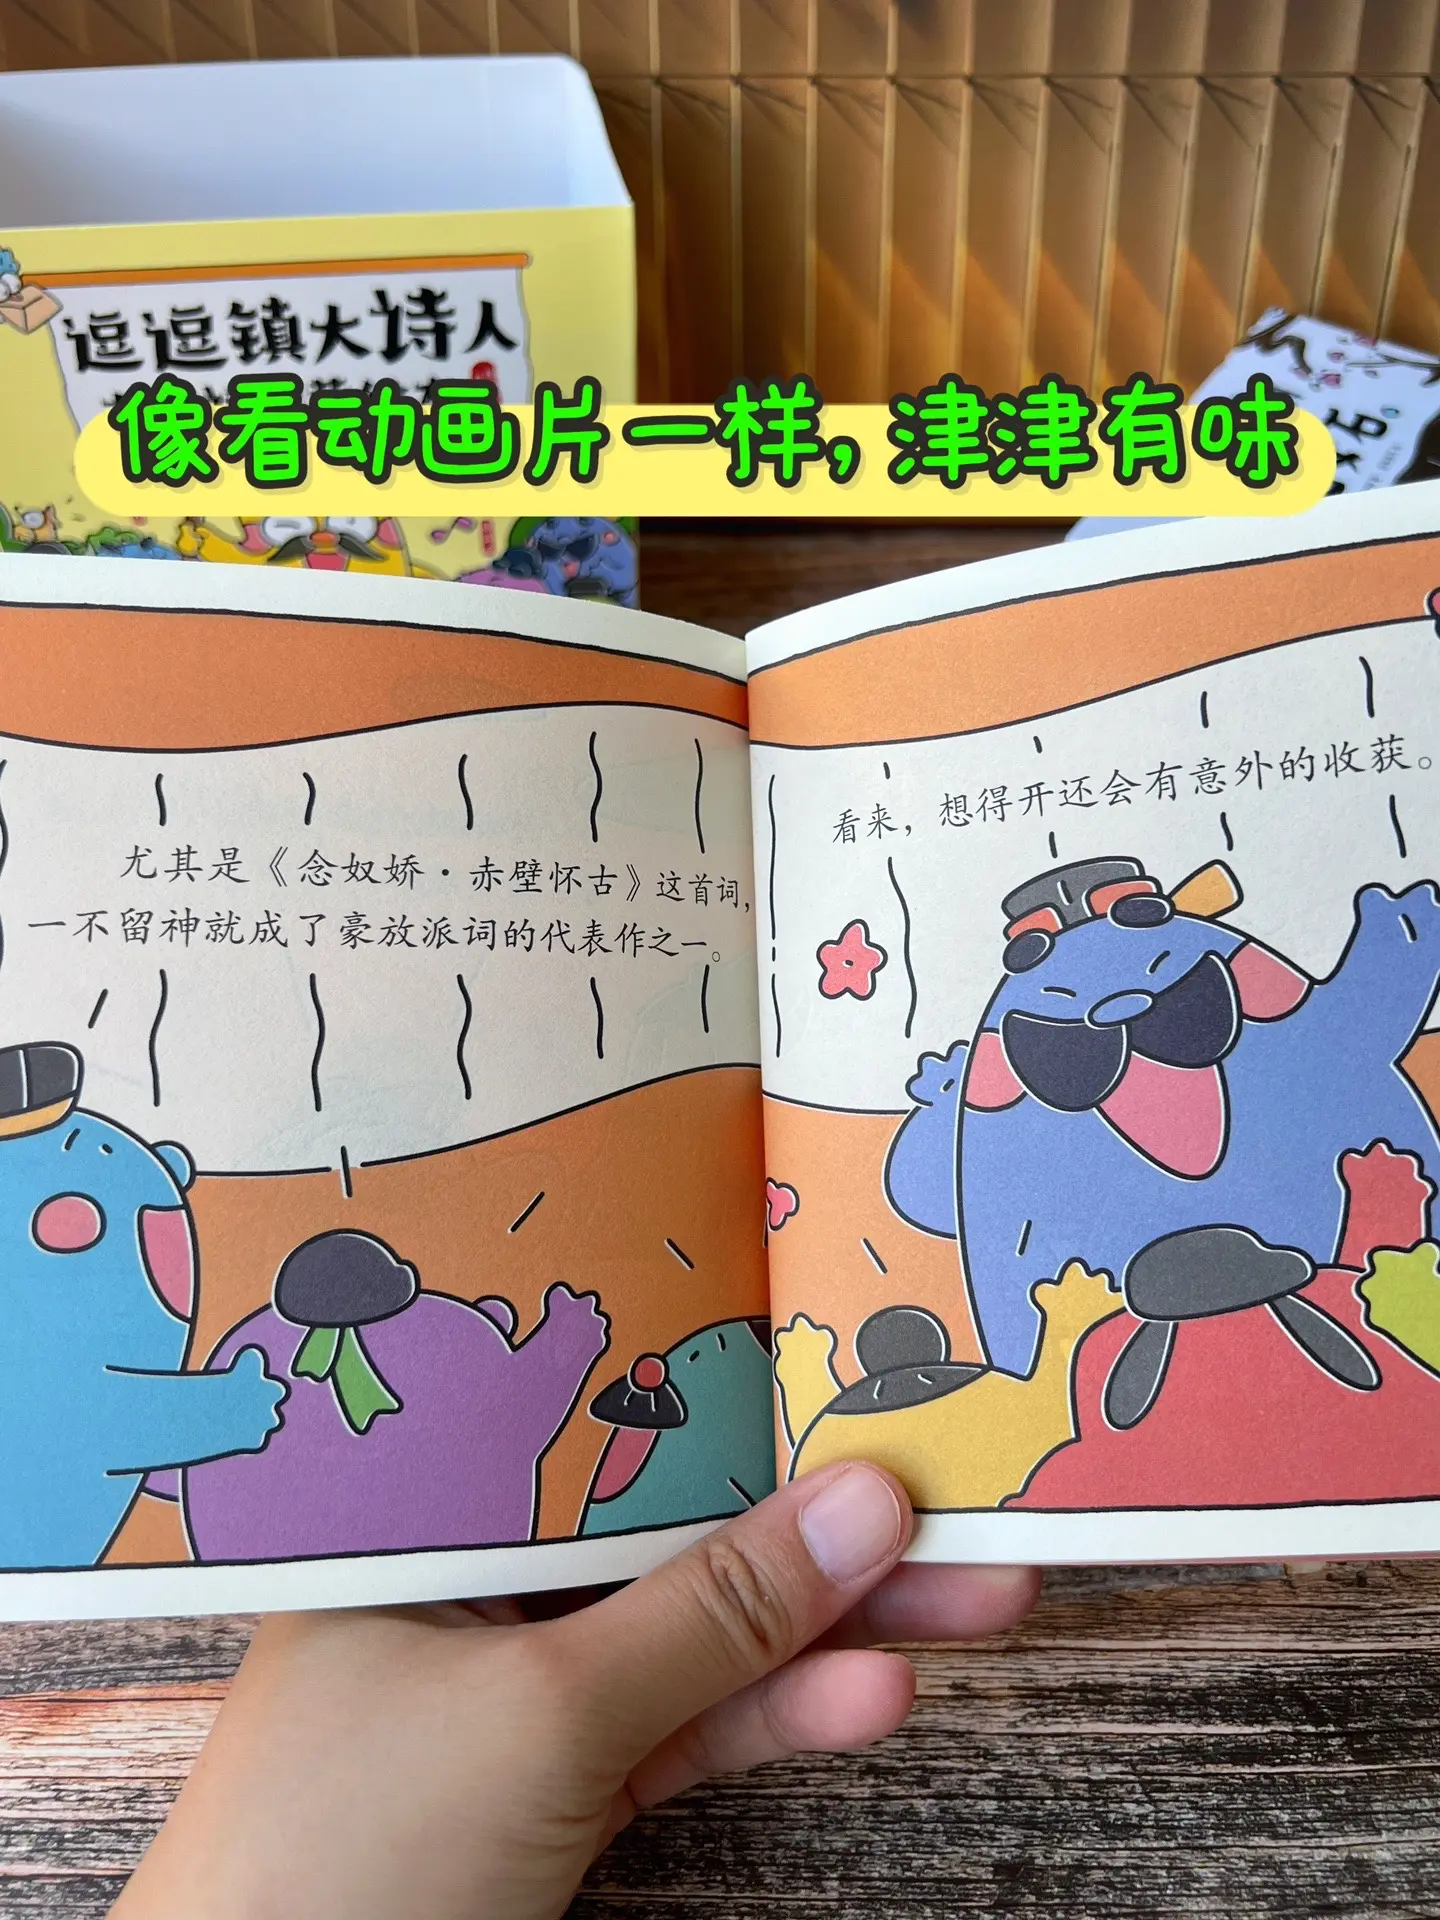 逗逗镇大诗人
像看动画片一样，津津有味
尤其是《念奴娇·赤壁怀古》这首词，
一不留神就成了豪放派词的代表作之一。
看来，想得开还会有意外的收获。